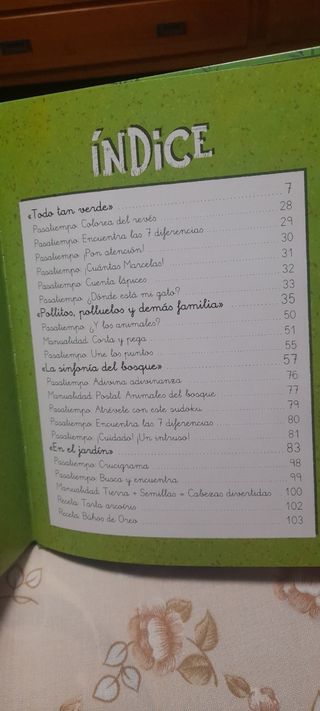 ÍNDICE
«Todo tan verde» 7
Pasatiempo: Colorea del revés 28
Pasatiempo: Encuentra las 7 diferencias 29
Pasatiempo: ¡Pon atención! 30
Pasatiempo: ¡Cuántas Marcelas! 31
Pasatiempo: Cuenta lápices 32
Pasatiempo: ¿Dónde está mi gato? 33
«Pollitos, polluelos y demás familia» 35
Pasatiempo: ¿Y los animales? 50
Manualidad: Corta y pega 51
Pasatiempo: Une los puntos 55
«La sinfonía del bosque» 57
Pasatiempo: Adivina adivinanza 76
Manualidad: Postal: Animales del bosque 77
Pasatiempo: Atrévete con este sudoku 79
Pasatiempo: Encuentra las 7 diferencias 80
Pasatiempo: ¡Cuidado! ¡Un intruso! 81
«En el jardín» 83
Pasatiempo: Crucigrama 98
Pasatiempo: Busca y encuentra 99
Manualidad: Tierra + Semillas = Cabezas divertidas 100
Receta: Tarta arcoíris 102
Receta: Búhos de Oreo 103